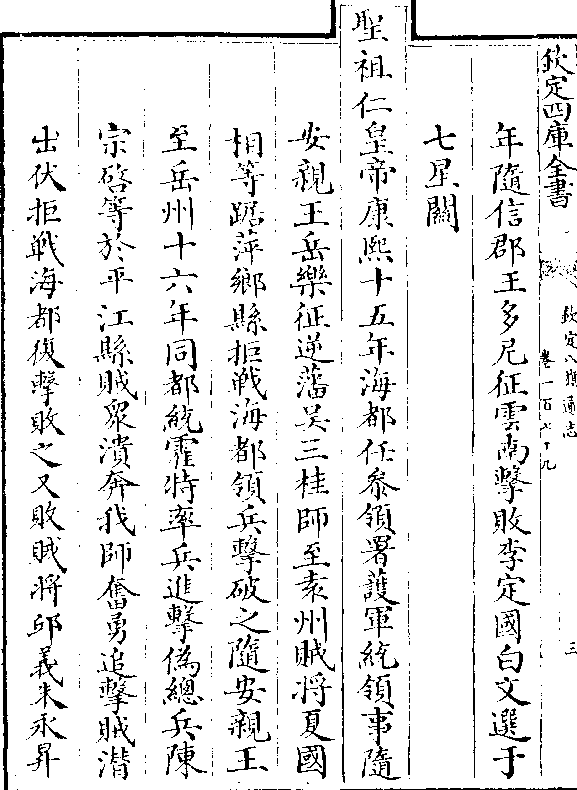 欽定四庫全書
欽定八旗通志
三
年隨信郡王多尼征雲南擊敗李定國白文選于
七星關
聖祖仁皇帝康熙十五年海都任叅領署護軍統領事隨
安親王岳樂征逆藩吳三桂師至袁州賊將夏國
相等踞萍鄉縣拒戰海都領兵擊破之隨安親王
至岳州十六年同都統霍特率兵進擊偽總兵陳
宗啓等於平江縣賊衆潰奔我師奮勇追擊賊潛
出伏拒戰海都復擊敗之又敗賊將邱義朱永昇